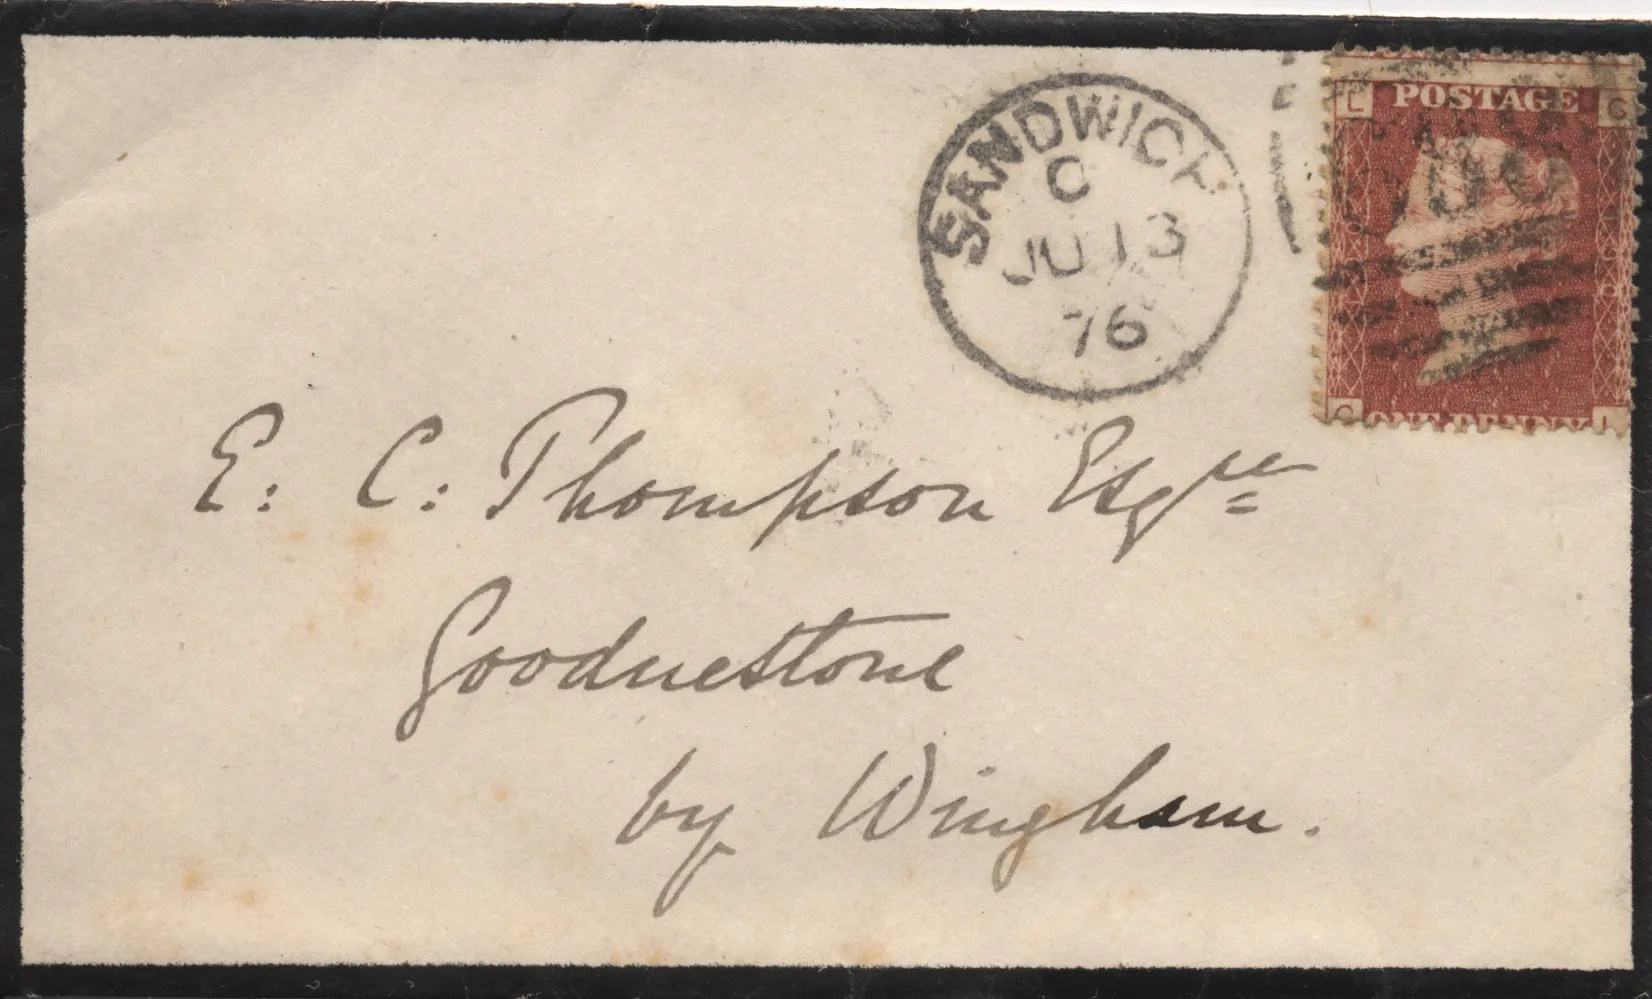 SANDWICH
C
JU 13
76
L POSTAGE G
G ONE PENNY L
E: C: Thompson Esqre
Goodnestone
by Wingham.